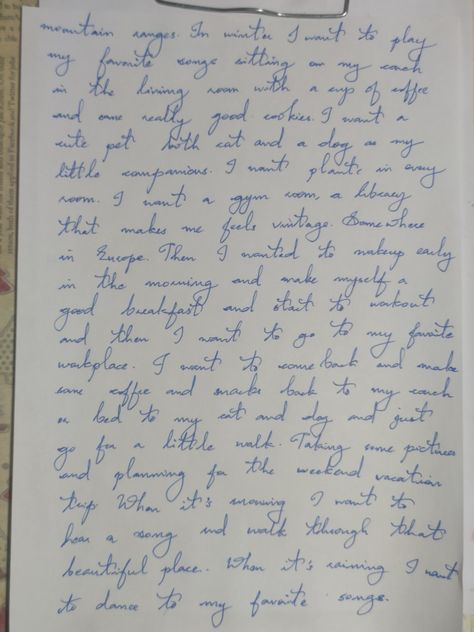 mountain ranges. In winter I want to play
my favorite songs sitting on my couch
in the living room with a cup of coffee
and some really good cookies. I want a
cute pet both cat and a dog as my
little companions. I want plants in every
room. I want a gym room, a library
that makes me feels vintage. Somewhere
in Europe. Then I wanted to wakeup early
in the morning and make myself a
good breakfast and start to workout
and then I want to go to my favorite
workplace. I want to come back and make
some coffee and snacks back to my couch
or bed to my cat and dog and just
go for a little walk. Taking some pictures
and planning for the weekend vacation
trip. When it's snowing I want to
hear a song and walk through that
beautiful place. When it's raining I want
to dance to my favorite songs.